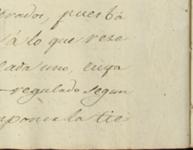 erados, puesta
á lo que rese
cada uno, cuya
regulado segun
mponer la tie